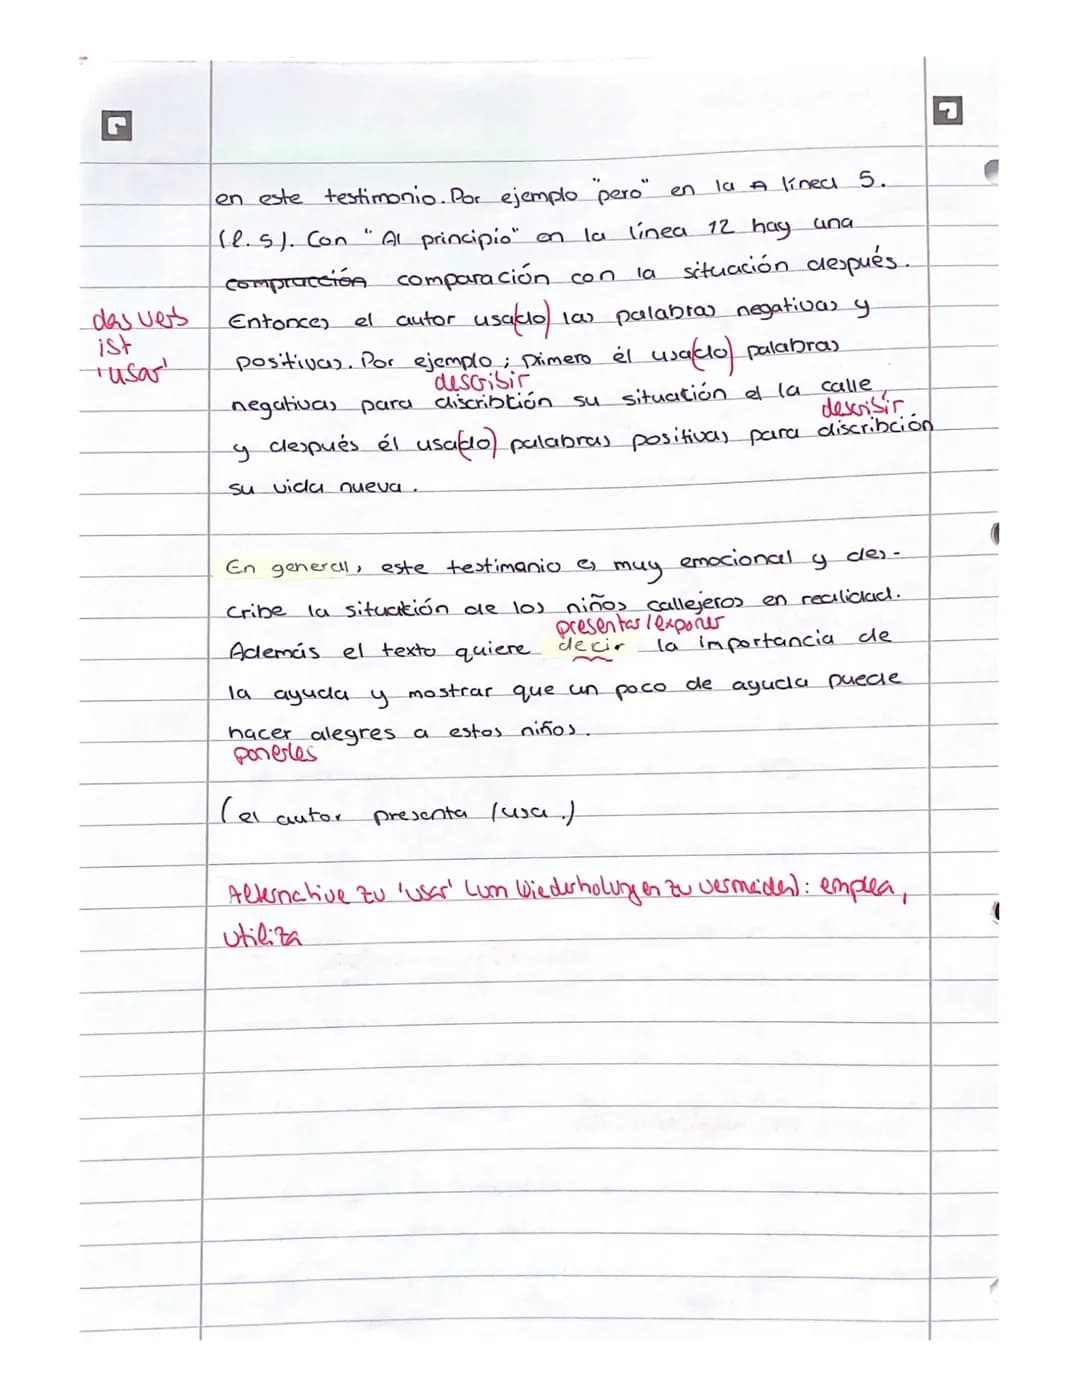 en este testimonio. Por ejemplo "pero" en la A línea 5.
(l. 5). Con "Al principio" en la línea 12 hay una
compracción comparación con la situación después.
das Verb
ist
'usar'
Entonces el autor usa(do) las palabras negativas y
positivas. Por ejemplo; Primero él usa(do) palabras
describir
negativas para discribtión su situación el la calle,
describir
y después él usa(do) palabras positivas para discribción
su vida nueva.
En general, este testimanio es muy emocional y des-
cribe la situatión de los niños callejeros en realidad.
presentar/exponer
Además el texto quiere decir la importancia de
la ayuda y mostrar que un poco de ayuda puede
hacer alegres a estos niños.
ponerles
(el autor presenta /usa.)
Alternative zu 'usar' (um Wiederholungen zu vermeiden): emplea,
utiliza